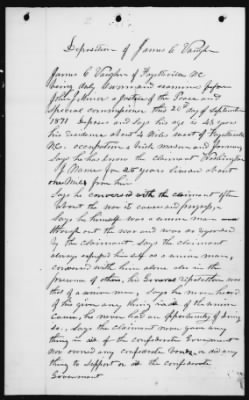 Deposition of James C Vaughn
James C Vaughn of Fayetteville NC
being duly sworn and examined before
John a Justice of the Peace and
special commissioner this 20th day of September
1871 Deposes and Says his age is 43 years
his residence about 4 miles east of Fayetteville
N.C. occupation Brick mason and farming
Says he has know the claimant Worthington
for 25 years lives about
one mile from him
Says he conversed with the claimant often
about the war its causes and progress,
Says he himself was a union man
through out the war and was so regarded
by the claimant, Says the claimant
always regarded him self as a union man,
conversed with him alone also in the
presence of others, his general reputation was
that of a union man, Says he never heard
of his given any thing in aid of the union
cause, he never had an opportunity of doing
so, Says the claimant never gave any
thing in aid of the confederate Government
nor owned any confederate bonds, or did any
thing to support or aid the confederate
Government